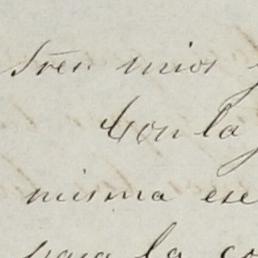 Sres. mios y
Con la
misma ese
para la co